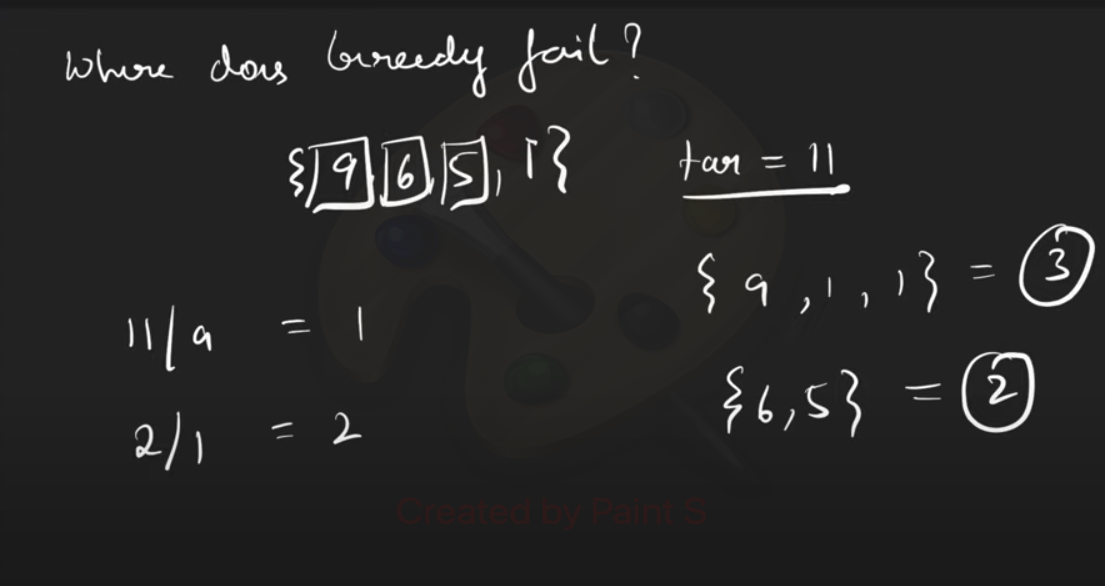 Where does Greedy fail?
{9, 6, 5, 1}
tar = 11
{9, 1, 1} = 3
{6, 5} = 2
11/9 = 1
2/1 = 2
Created by Paint S